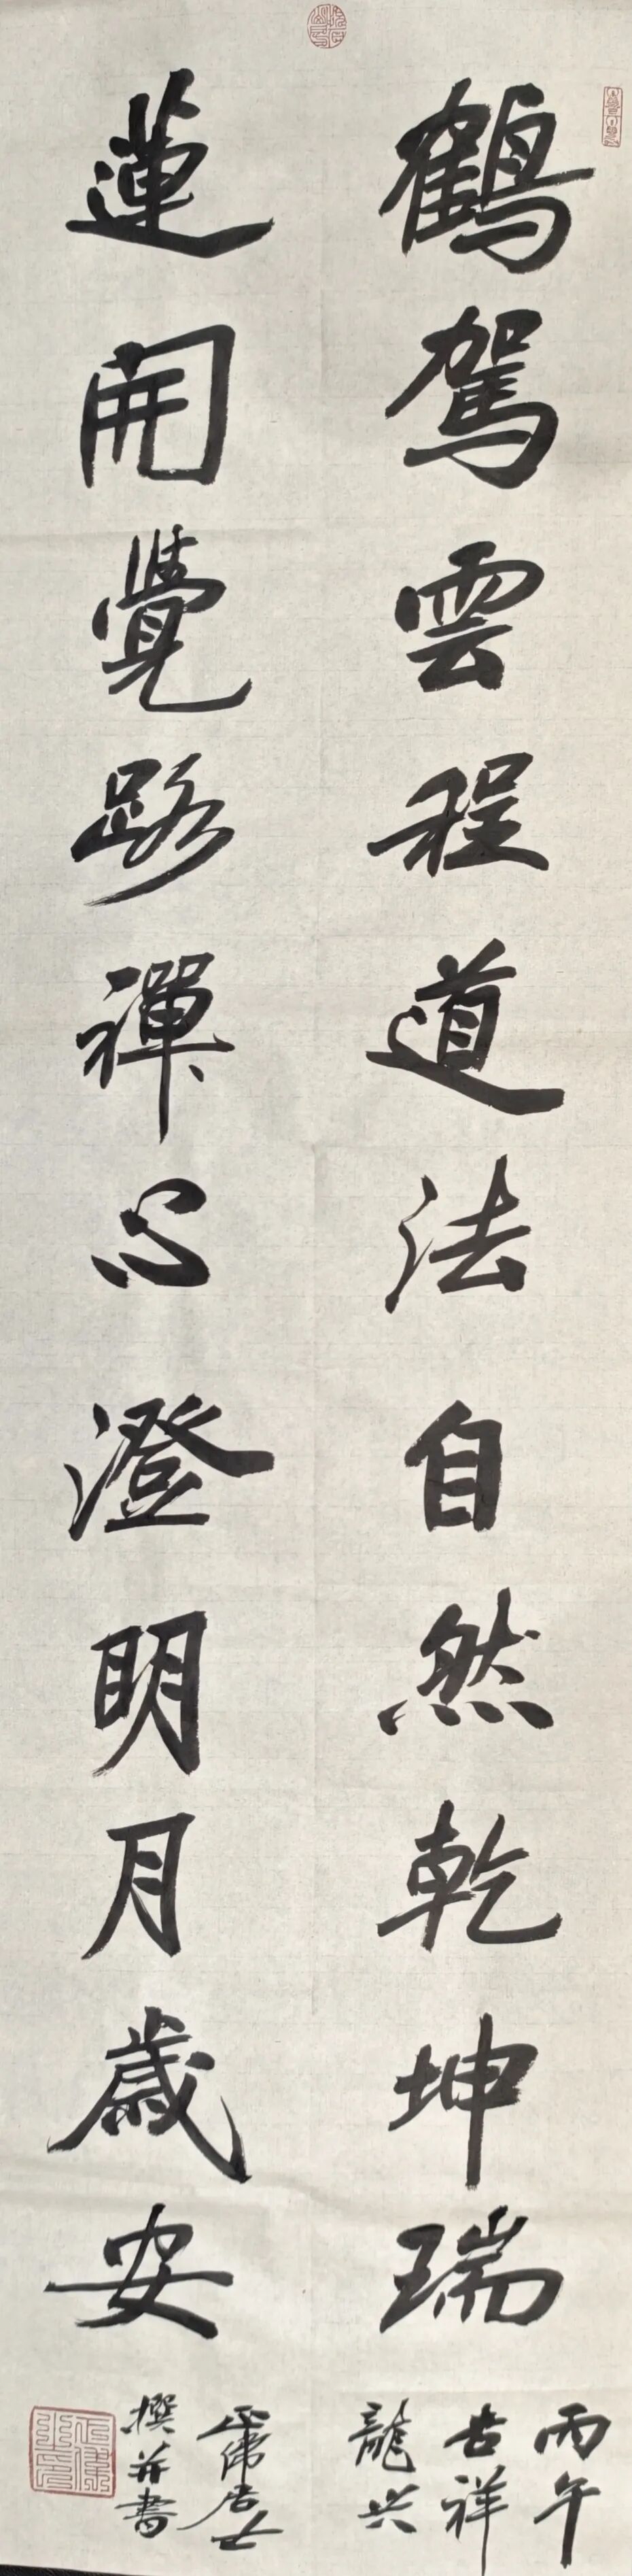 鶴駕雲程道法自然乾坤瑞
丙午
吉祥
龍興
蓮開覺路禪心澄明月歲安
正佛居士
撰并書